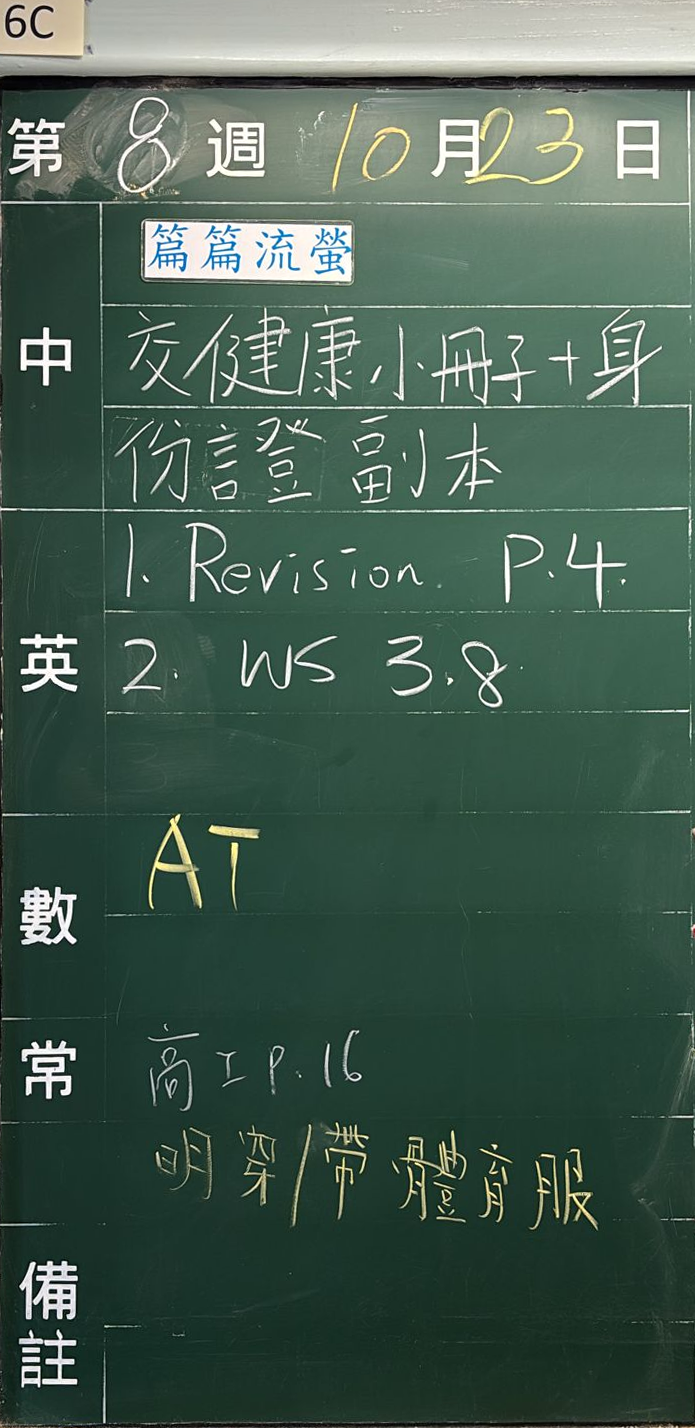 6C
第 8 週 10 月 23 日
篇篇流螢
中
交健康小冊子+身
份證副本
1. Revision. P.4.
英
2. WS 3.8
AT
數
常
商工P.16
明穿/帶體育服
備
註